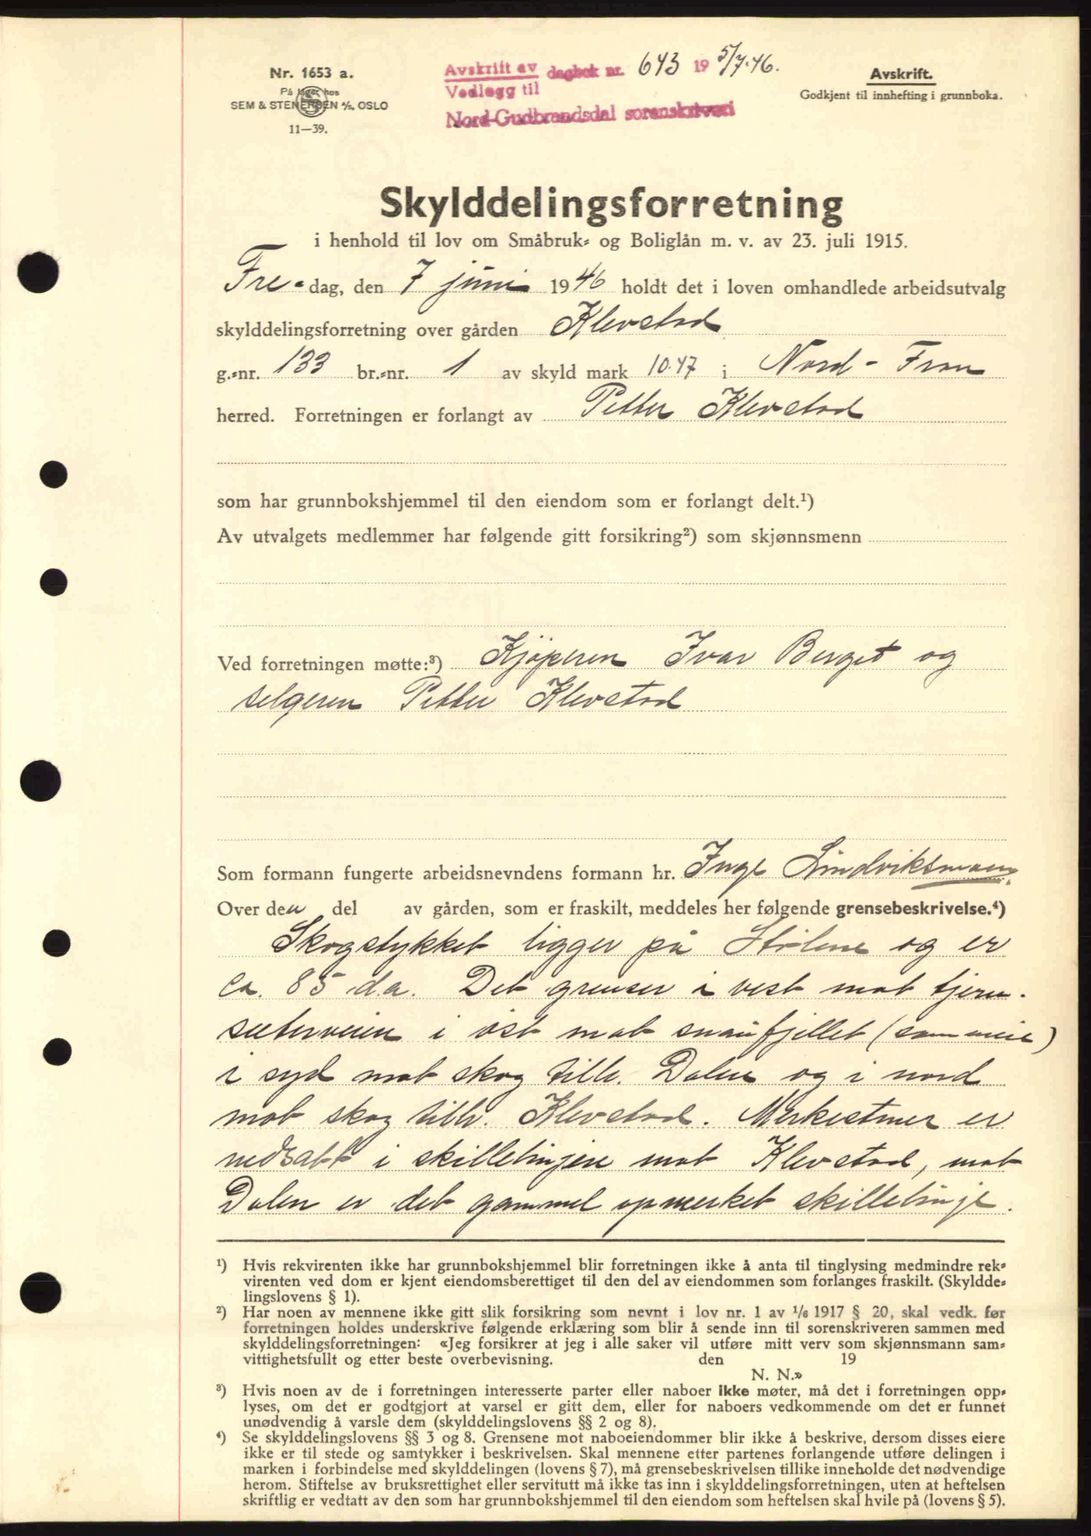 Nr. 1653 a.
På lager hos
SEM & STENERSEN A/S. OSLO
11—39.
Avskrift av
Vedlegg til
dagbok nr. 643 19 5/7.46.
Nord-Gudbrandsdal sorenskriveri
Avskrift.
Godkjent til innhefting i grunnboka.
Skylddelingsforretning
i henhold til lov om Småbruk- og Boliglån m. v. av 23. juli 1915.
Fre-dag, den 7 juni 1946 holdt det i loven omhandlede arbeidsutvalg
skylddelingsforretning over gården Klevstad
g.-nr. 133 br.-nr. 1 av skyld mark 10.47 i Nord-Fron
herred. Forretningen er forlangt av Petter Klevstad
som har grunnbokshjemmel til den eiendom som er forlangt delt.¹)
Av utvalgets medlemmer har følgende gitt forsikring²) som skjønnsmenn
Ved forretningen møtte:³) Kjøperen Ivar Berget og
selgeren Petter Klevstad
Som formann fungerte arbeidsnevndens formann hr. Inge
Over den del av gården, som er fraskilt, meddeles her følgende grensebeskrivelse.⁴)
Skogstykket ligger på Stølene og er
ca. 85 d.a. Det grenser i vest mot tjern-
seterveien i øst mot snaufjellet (sameie)
i syd mot skog tilh. Dalen og i nord
mot skog tilh. Klevstad. Merkestener er
nedsatt i skillelinjene mot Klevstad, mot
Dalen er det gammel opmerket skillelinje.
¹) Hvis rekvirenten ikke har grunnbokshjemmel blir forretningen ikke å anta til tinglysing medmindre rek-
virenten ved dom er kjent eiendomsberettiget til den del av eiendommen som forlanges fraskilt. (Skyldde-
lingslovens § 1).
²) Har noen av mennene ikke gitt slik forsikring som nevnt i lov nr. 1 av 1/6 1917 § 20, skal vedk. før
forretningen holdes underskrive følgende erklæring som blir å sende inn til sorenskriveren sammen med
skylddelingsforretningen: «Jeg forsikrer at jeg i alle saker vil utføre mitt verv som skjønnsmann sam-
vittighetsfullt og etter beste overbevisning. den 19
N. N.»
³) Hvis noen av de i forretningen interesserte parter eller naboer ikke møter, må det i forretningen opp-
lyses, om det er godtgjort at varsel er gitt dem, eller for naboers vedkommende om det er funnet
unødvendig å varsle dem (skylddelingslovens §§ 2 og 8).
⁴) Se skylddelingslovens §§ 3 og 8. Grensene mot naboeiendommer blir ikke å beskrive, dersom disses eiere
ikke er til stede og samtykker i beskrivelsen. Skal mennene etter partenes forlangende utføre delingen i
marken i forbindelse med skylddelingen (lovens § 7), må grensebeskrivelsen tillike inneholde det nødvendige
herom. Stiftelse av bruksrettighet eller servitutt må ikke tas inn i skylddelingsforretningen, uten at heftelsen
skriftlig er vedtatt av den som har grunnbokshjemmel til den eiendom som heftelsen skal hvile på (lovens § 5).